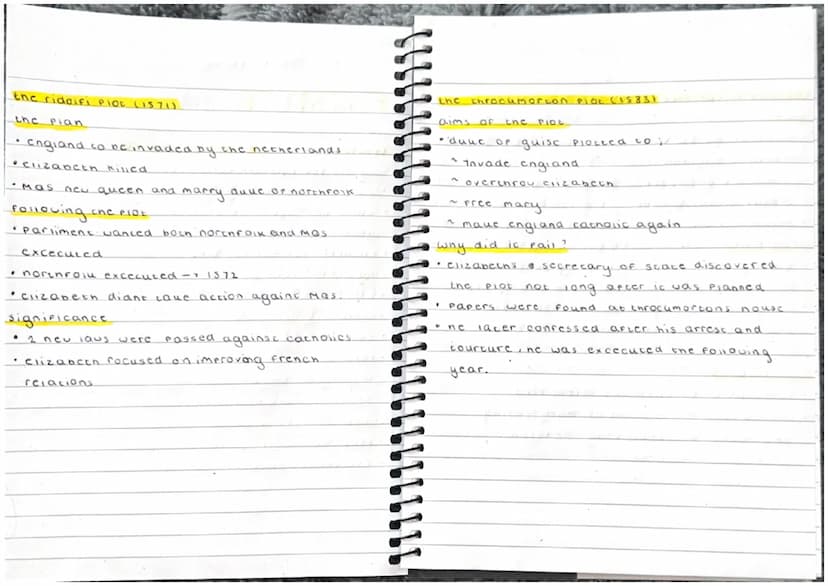 the ridolfi plot (1571)
the plan
• england to be invaded by the netherlands
• elizabeth killed
• MQS new queen and marry duke of northfolk
following the plot
• parliment wanted both northfolk and MQS
excecuted
• northfolk excecuted → 1572
• elizabeth didnt take action againt MQS.
significance
• 2 new laws were passed against catholics
• elizabeth focused on improving french
relations
the throckmorton plot (1583)
aims of the plot
• duke of guise plotted to;
~ invade england
~ overthrow elizabeth
~ free mary
~ make england catholic again
why did it fail?
• elizabeths secretary of state discovered
the plot not long after it was planned
• papers were found at throckmortons house
• he later confessed after his arrest and
tourture, he was excecuted the following
year.